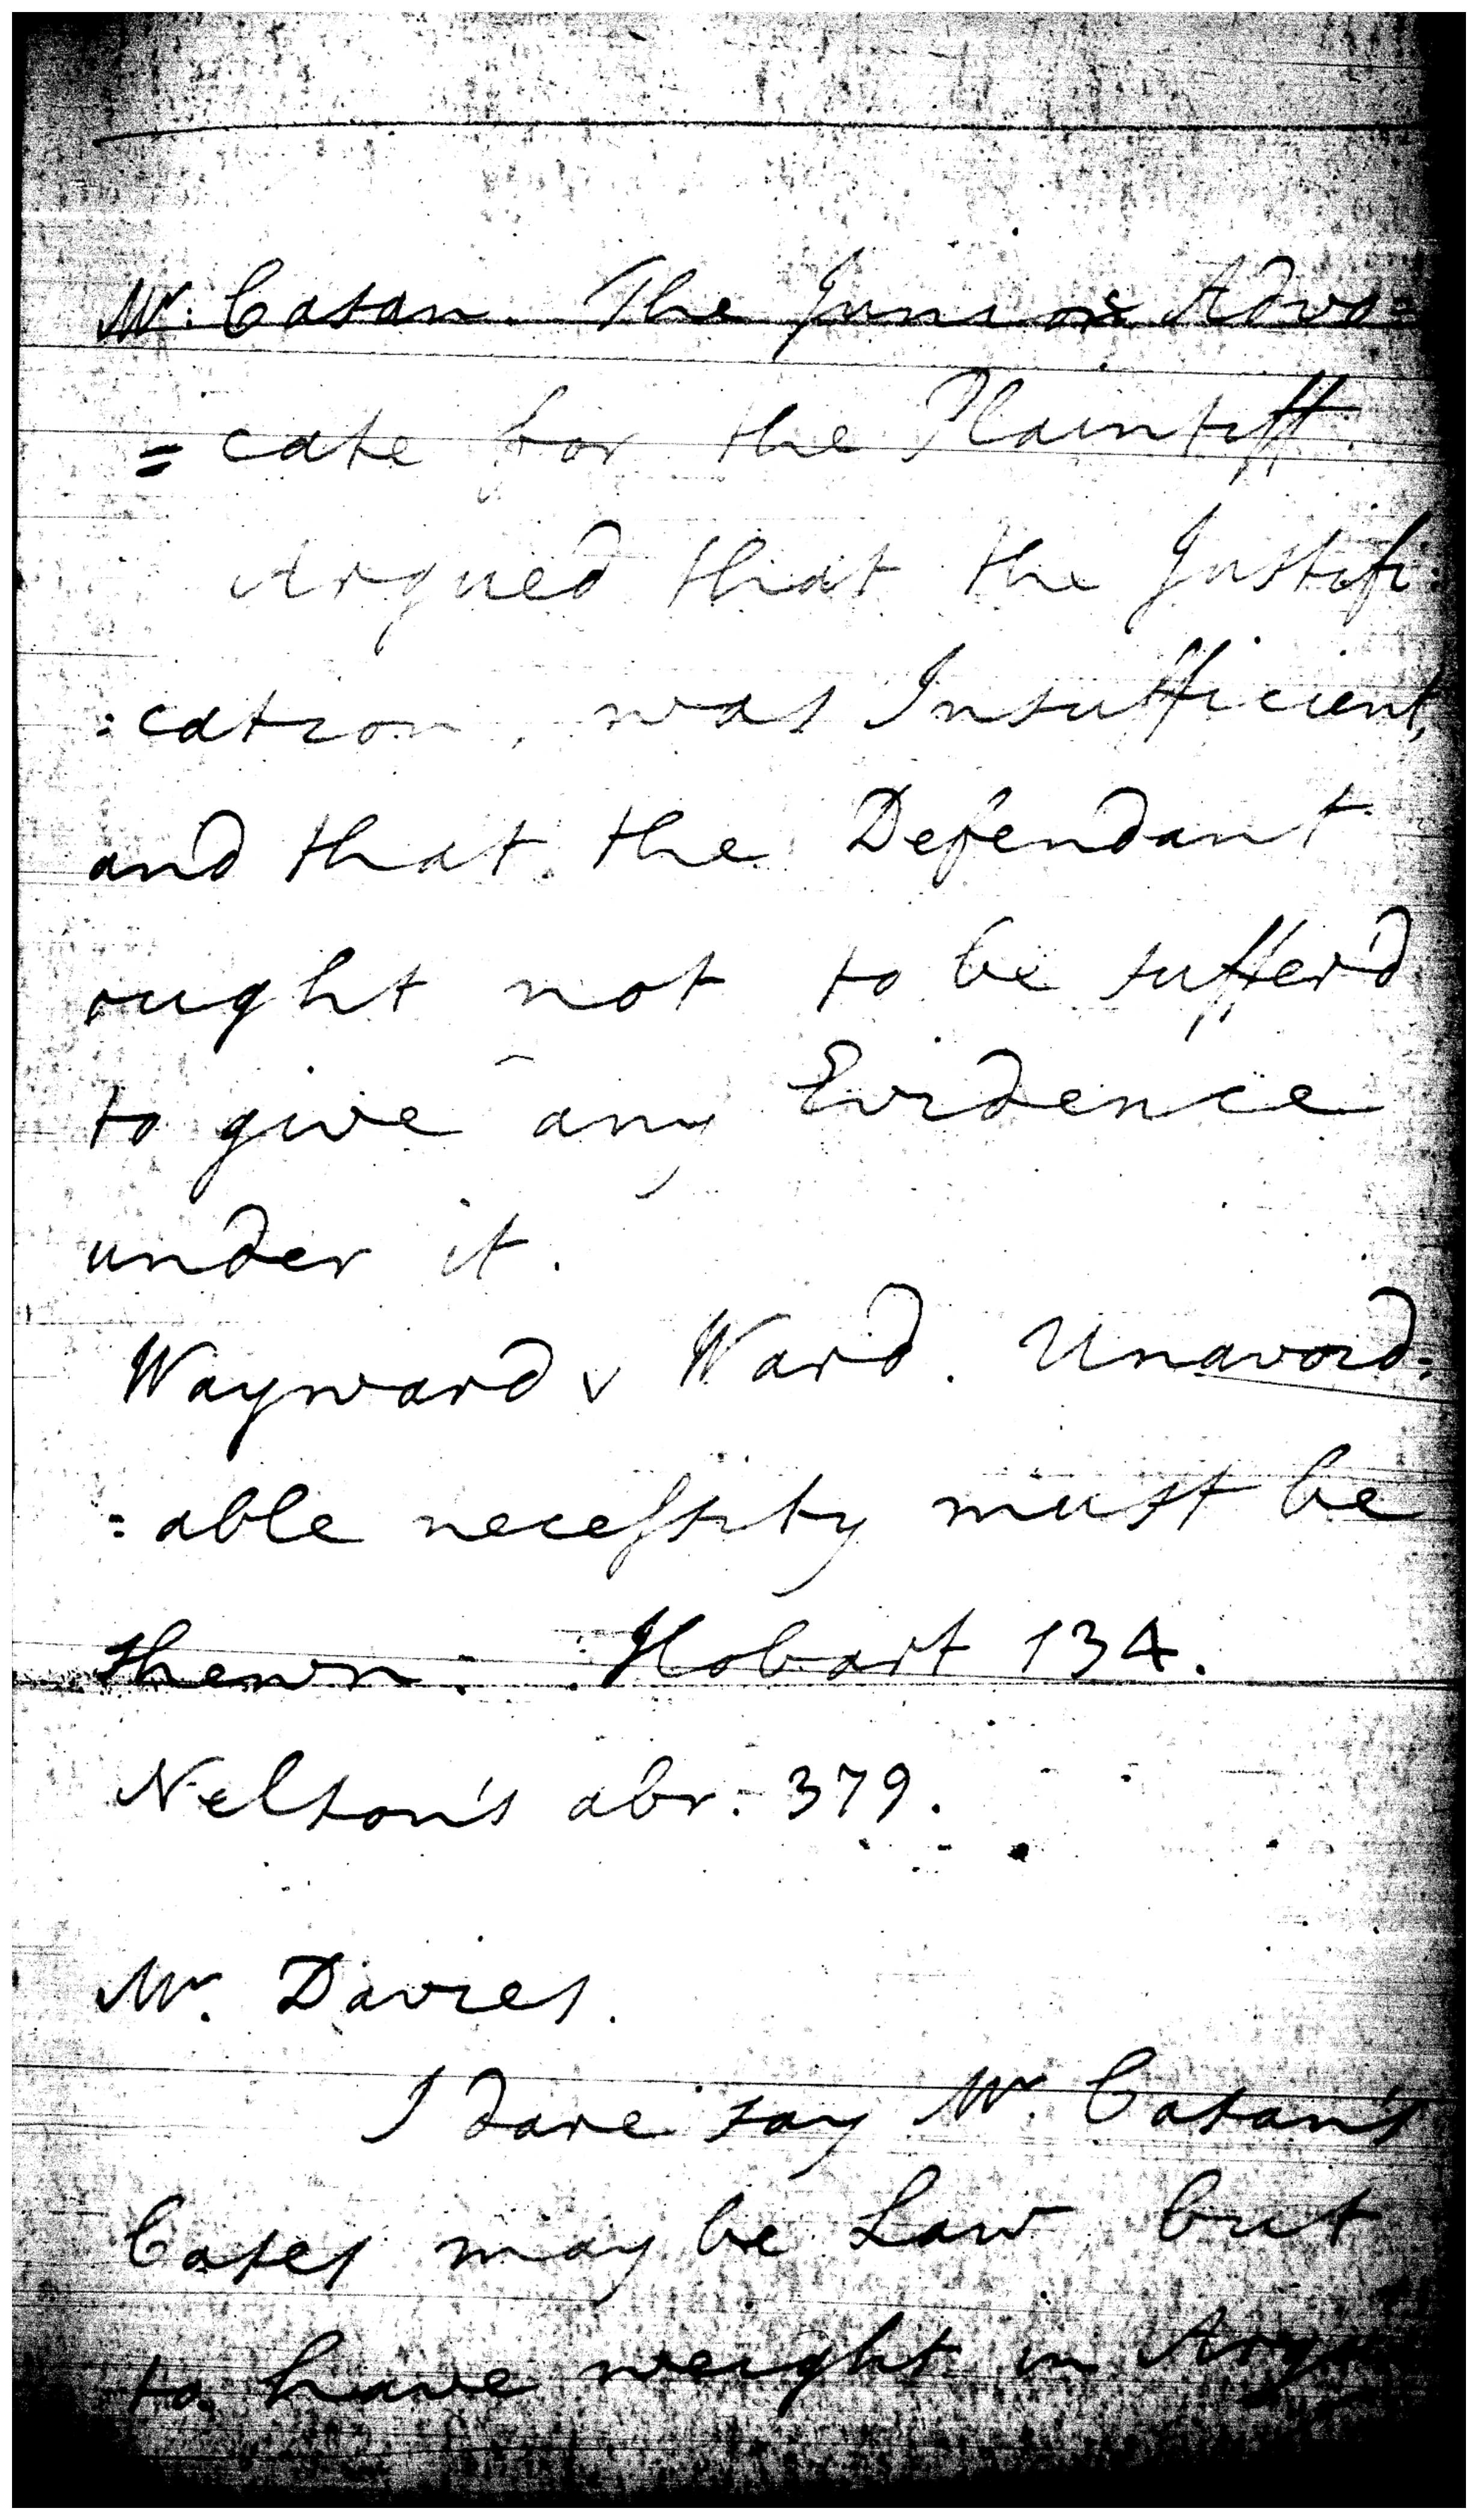 Mr. Casan. The Juniors Advo=
=cate for the Plaintiff.
Argued that the Justifi:
:cation, was Insufficient,
and that the Defendant
ought not to be suffer'd
to give any Evidence
under it.
Wayward v Ward. Unavoid:
:able necessity must be
shewn. Hobart 134.
Nelson's abr: 379.
Mr. Davies.
I dare say Mr. Casan's
Cases may be Law but
to have weight in